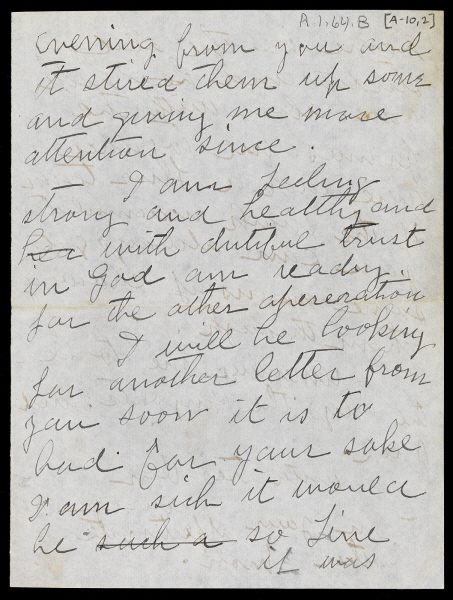 A.1.64.B [A-10,2]
evening from you and
it stired them up some
and giving me more
attention since.
I am feeling
strong and healthy and
her with dutiful trust
in God am ready
for the other apereration
I will be looking
for another letter from
you soon it is to
bad for your sake
I am sick it would
be such a so fine
it was